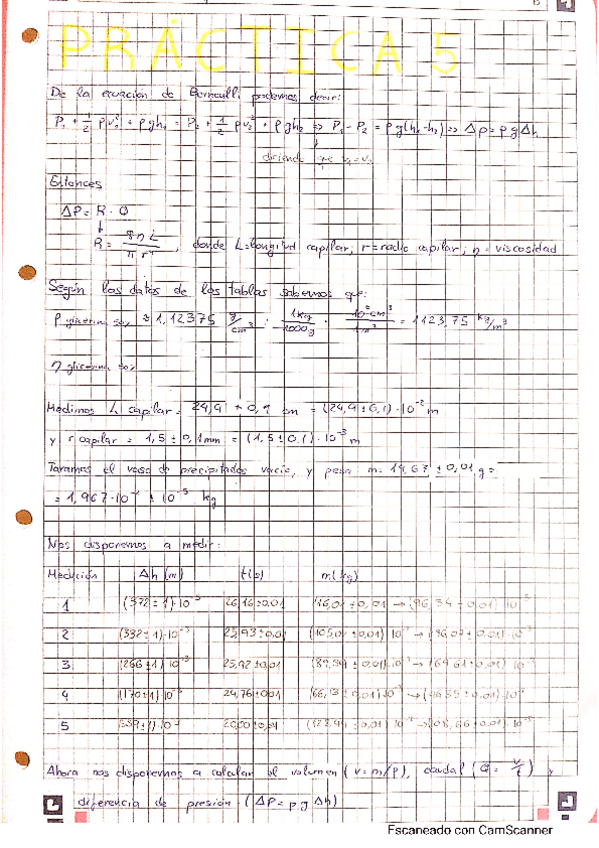 PRÁCTICA 5
De la ecuación de Bernoulli podemos decir:
P₁ + 1/2 ρv₁² + ρgh₁ = P₂ + 1/2 ρv₂² + ρgh₂ => P₁ - P₂ = ρg(h₁-h₂) => Δp = ρgΔh
diciendo que v₁=v₂
Entonces
ΔP = R · Q
R = 8ηL / πr⁴, donde L=longitud capilar; r=radio capilar; η = viscosidad
Según los datos de las tablas sabemos que:
ρ glicerina 50% ≈ 1,12375 g/cm³ · 1kg/1000g · 10⁶cm³/1m³ = 1123,75 kg/m³
η glicerina 50%
Medimos L capilar = 24,9 ± 0,1 cm = (24,9 ± 0,1)·10⁻² m
y r capilar = 1,5 ± 0,1mm = (1,5 ± 0,1)·10⁻³ m
Taramos el vaso de precipitados vacío, y pesa m= 19,67 ± 0,01 g =
Nos disponemos a medir:
Medición Δh (m) t(s) m(kg)
1 (372 ± 1)·10⁻³ 26,16±0,01
2 (332±1)·10⁻³ 25,93±0,01
3 (266±1)·10⁻³ 25,92±0,01
4 (170±1)·10⁻³ 24,76±0,01
5
Ahora nos disponemos a calcular el volumen (v = m/ρ), caudal (Q = v/t) y
diferencia de presión (ΔP = ρgΔh)
Escaneado con CamScanner